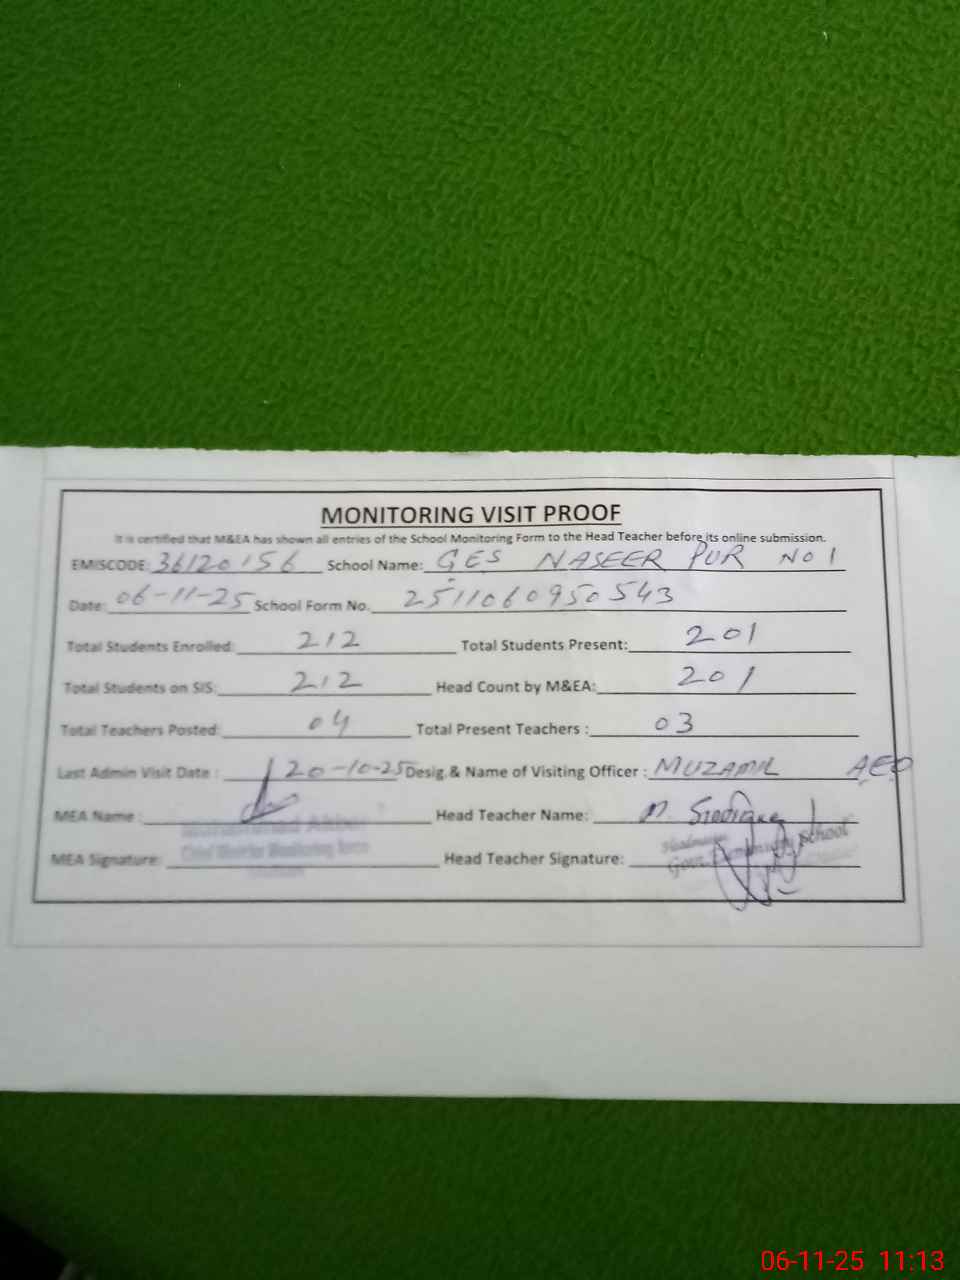 MONITORING VISIT PROOF
It is certified that M&EA has shown all entries of the School Monitoring Form to the Head Teacher before its online submission.
EMISCODE: 36120156 School Name: GES NASEER PUR NO 1
Date: 06-11-25 School Form No. 2511060950543
Total Students Enrolled: 212 Total Students Present: 201
Total Students on SIS: 212 Head Count by M&EA: 201
Total Teachers Posted: 04 Total Present Teachers : 03
Last Admin Visit Date : 20-10-25 Desig.& Name of Visiting Officer : MUZAMIL AEO
MEA Name : Head Teacher Name: M.
Muhammad
MEA Signature: Head Teacher Signature:
Govt. Elementary School
06-11-25 11:13